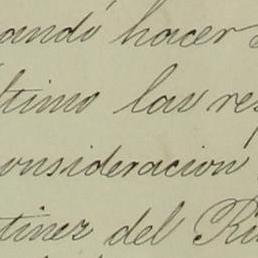 ando hacer
ltimo las res
onsideracion
tinez del Ri